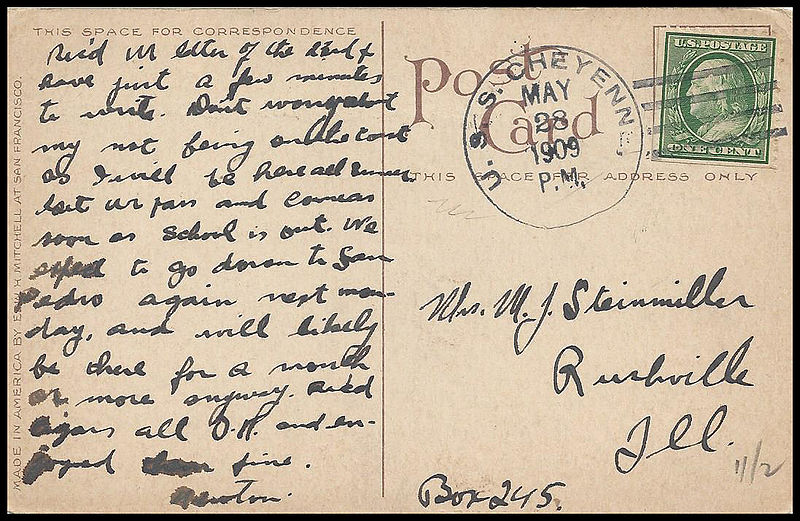 THIS SPACE FOR CORRESPONDENCE
Rec'd letter of the 23rd &
have just a few minutes
to write. Don't worry about
my not being on the coast
as I will be here all summer.
Get ur pass and come as
soon as school is out. We
expect to go down to San
Pedro again next mon-
day, and will likely
be there for a month
or more anyway. Rec'd
cigars all O.K. and en-
joyed them fine.
Newton.
MADE IN AMERICA BY EDW. H. MITCHELL AT SAN FRANCISCO.
Post
Card
THIS SPACE FOR ADDRESS ONLY
U. S. S. CHEYENNE.
MAY
28
1909
P.M.
U.S. POSTAGE
ONE CENT
Mrs. M. J. Steinmiller
Rushville
Ill.
Box 245.
11/2